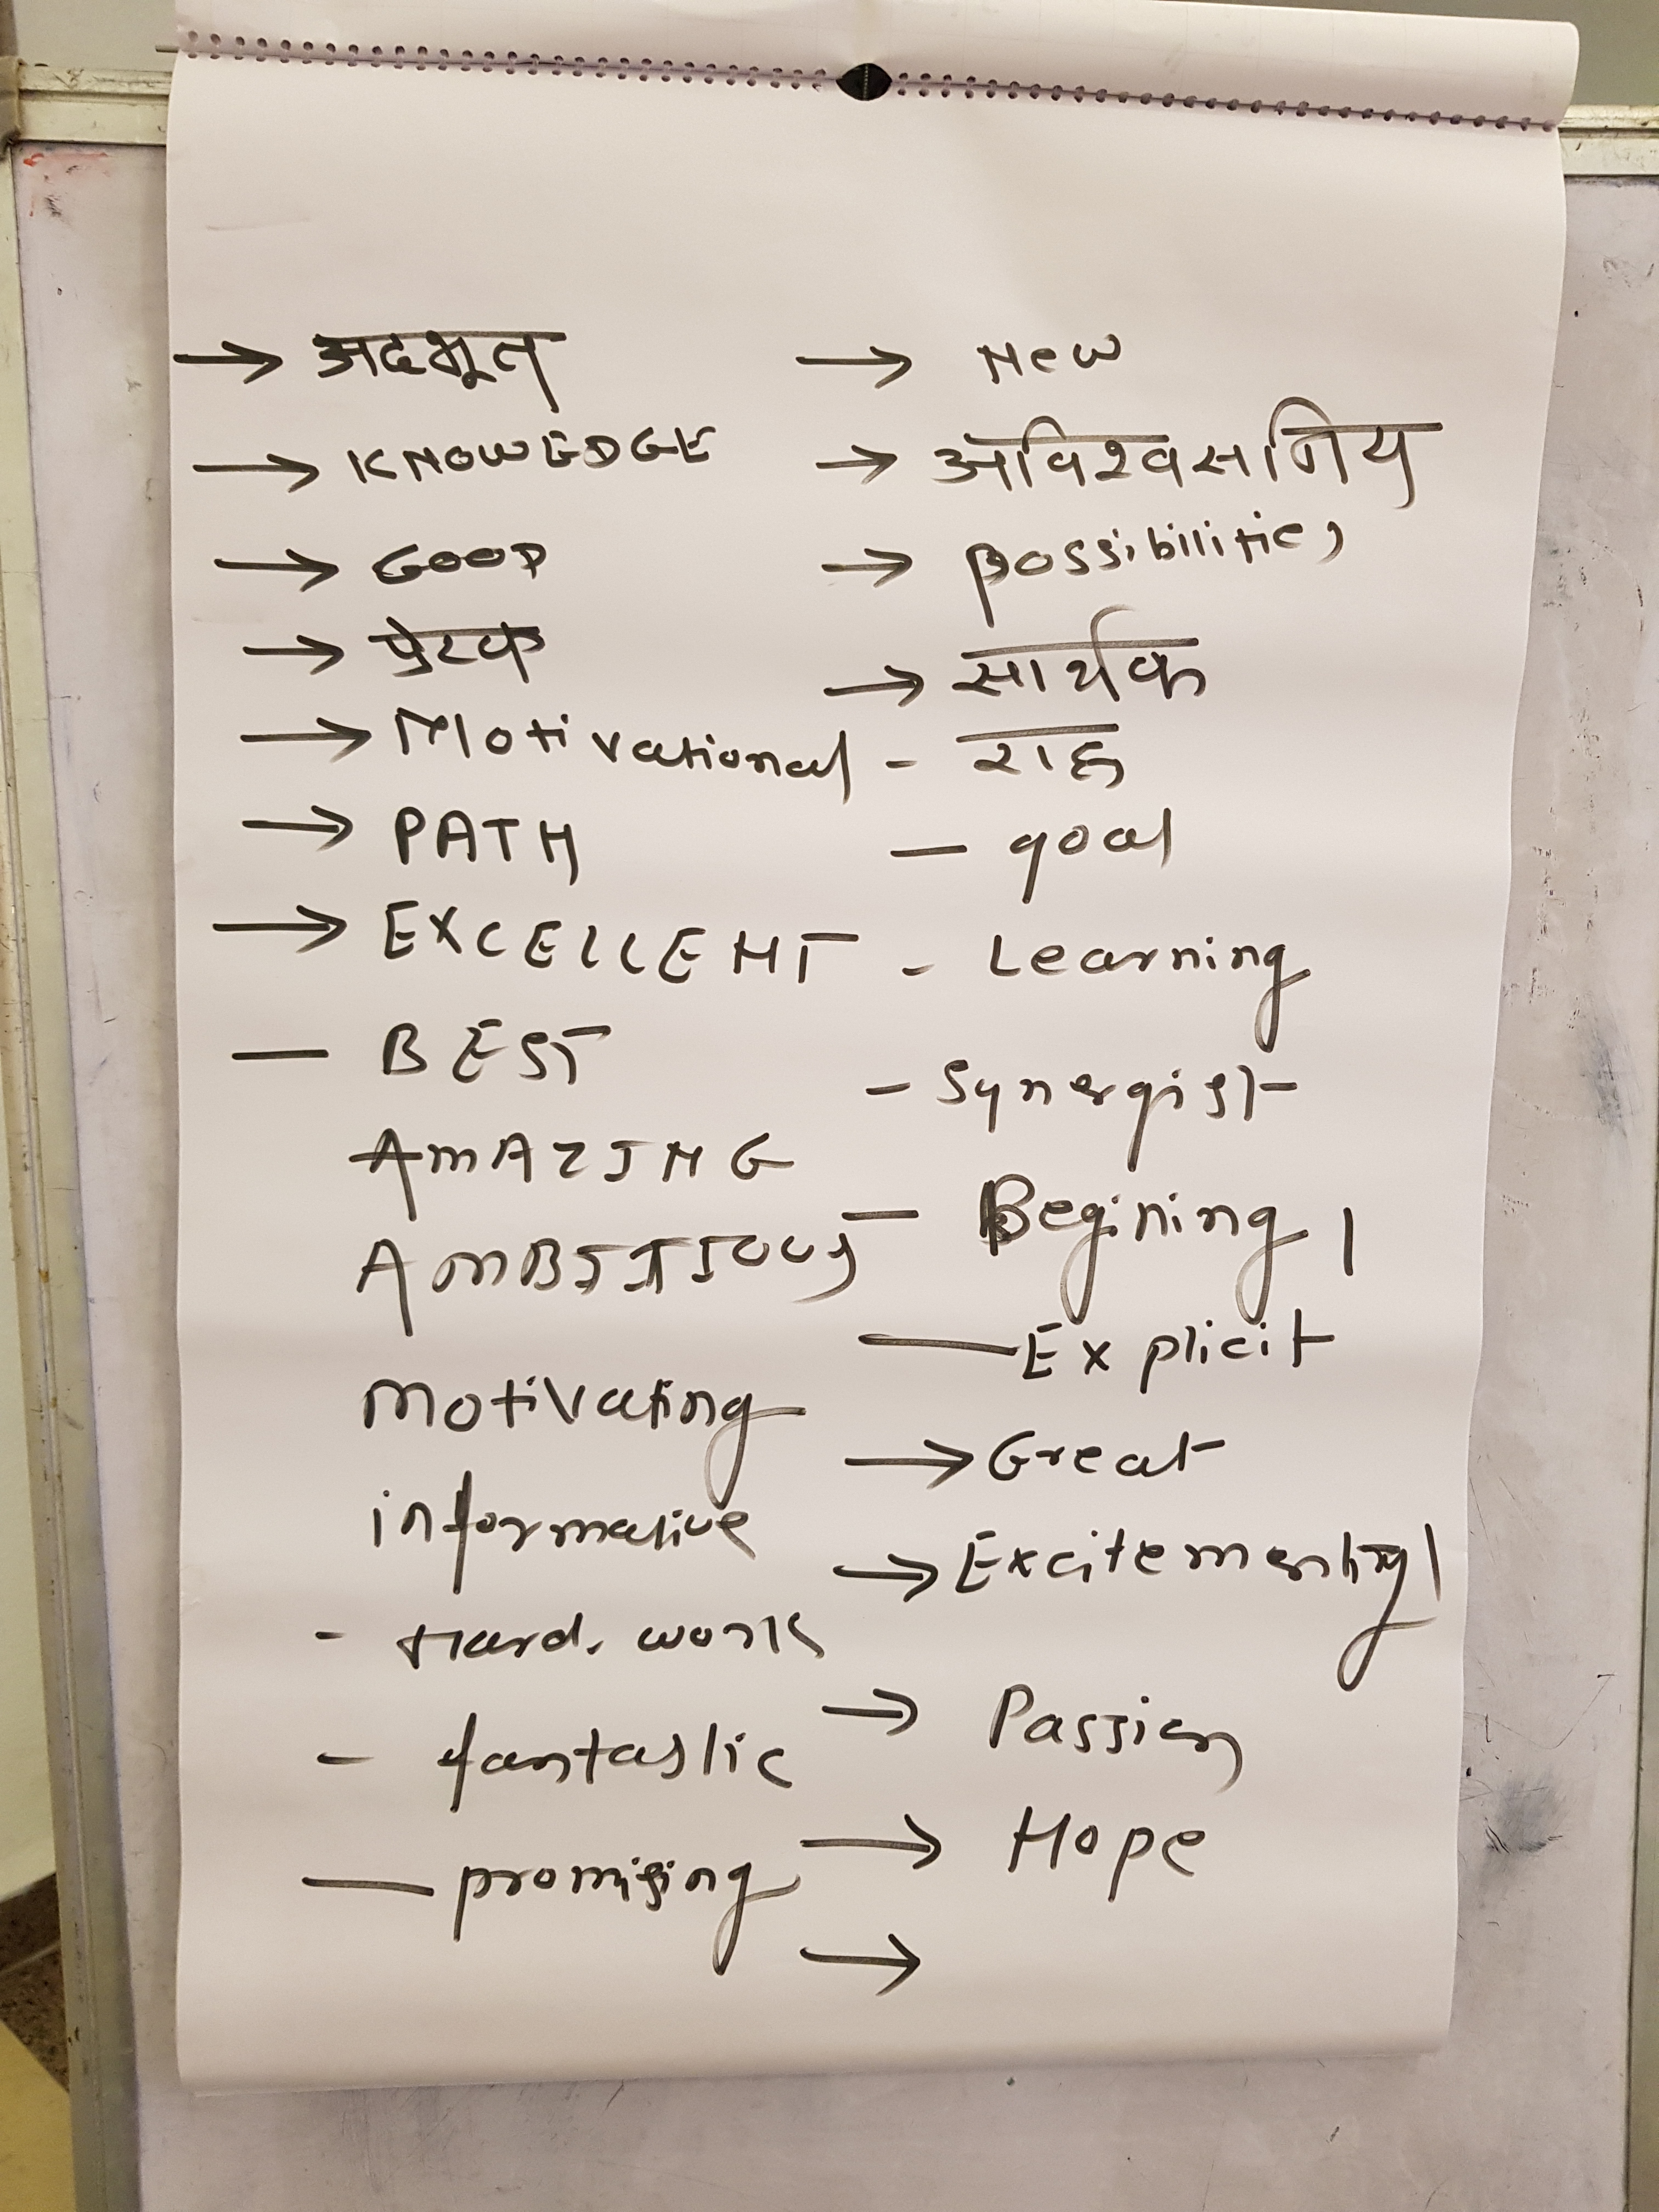 → अदभूत
→ KNOWEDGE
→ GOOD
→ प्रेरक
→ Motivational
→ PATH
→ EXCELLENT
— BEST
AMAZING
AMBITIOUS
Motivating
informative
- Hard work
- fantastic
— promising
→ New
→ अविश्वसनिय
→ possibilities
→ सार्थक
- राह
— goal
- Learning
- Synergist
— Begining
— Explicit
→ Great
→ Passion
→ Hope
→